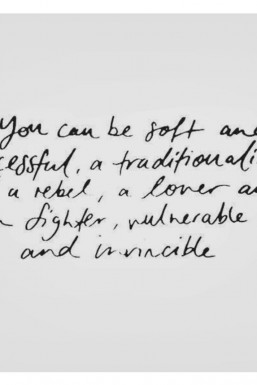 You can be soft an
cessful, a traditionali
a rebel, a lover a
fighter, vulnerable
and invincible